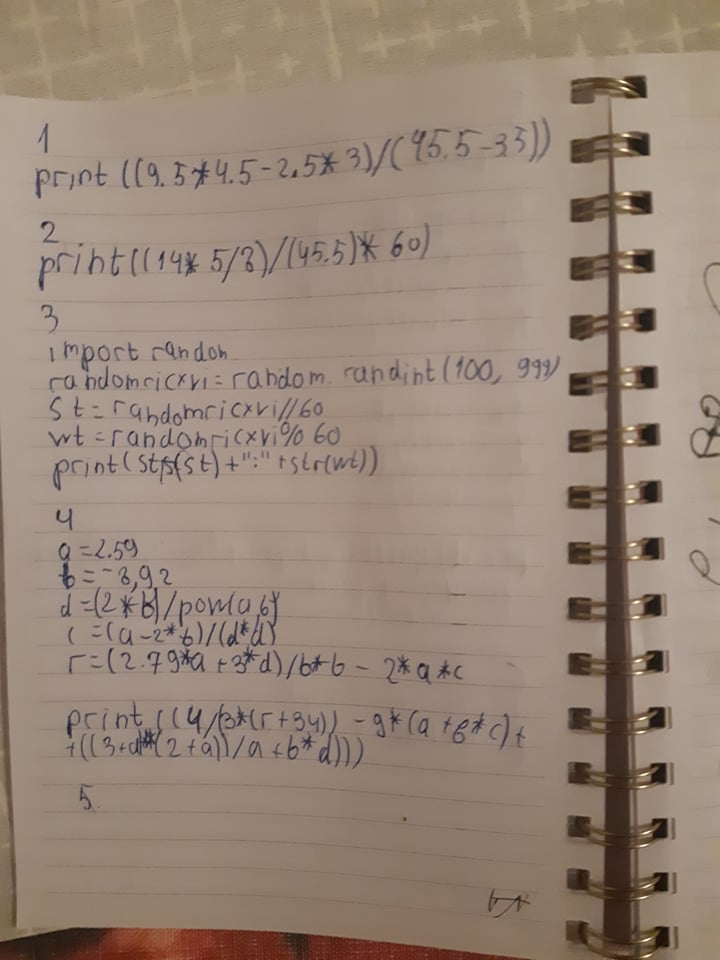 1
print ((9.5*4.5-2.5*3)/(45.5-35))
2
print((14* 5/3)/(45.5)* 60)
3
import random
randomricxvi=random.randint(100, 999)
St=randomricxvi//60
wt=randomricxvi%60
print(str(St)+":"+str(wt))
4
a=2.59
b=-8,92
d=(2*b)/pow(a,b)
c=(a-2*b)/(d*d)
r=(2.79*a+3*d)/b*b-2*a*c
print((4/3*(r+34))-9*(a+b*c)+
+((3+d*(2+a))/a+b*d)))
5.